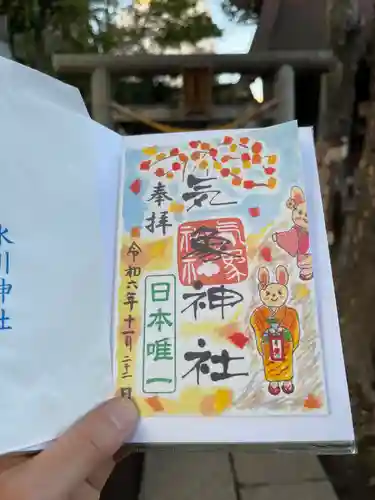 氷川神社
奉拝
気象神社
気象神社
日本唯一
令和六年十一月